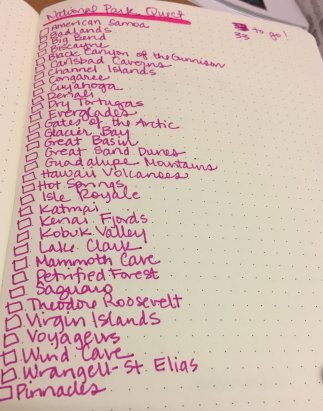 National Park Quest
33 to go!
American Samoa
Badlands
Big Bend
Biscayne
Black Canyon of the Gunnison
Carlsbad Caverns
Channel Islands
Congaree
Cuyahoga
Denali
Dry Tortugas
Everglades
Gates of the Arctic
Glacier Bay
Great Basin
Great Sand Dunes
Guadalupe Mountains
Hawaii Volcanoes
Hot Springs
Isle Royale
Katmai
Kenai Fjords
Kobuk Valley
Lake Clark
Mammoth Cave
Petrified Forest
Saguaro
Theodore Roosevelt
Virgin Islands
Voyageurs
Wind Cave
Wrangell-St Elias
Pinnacles